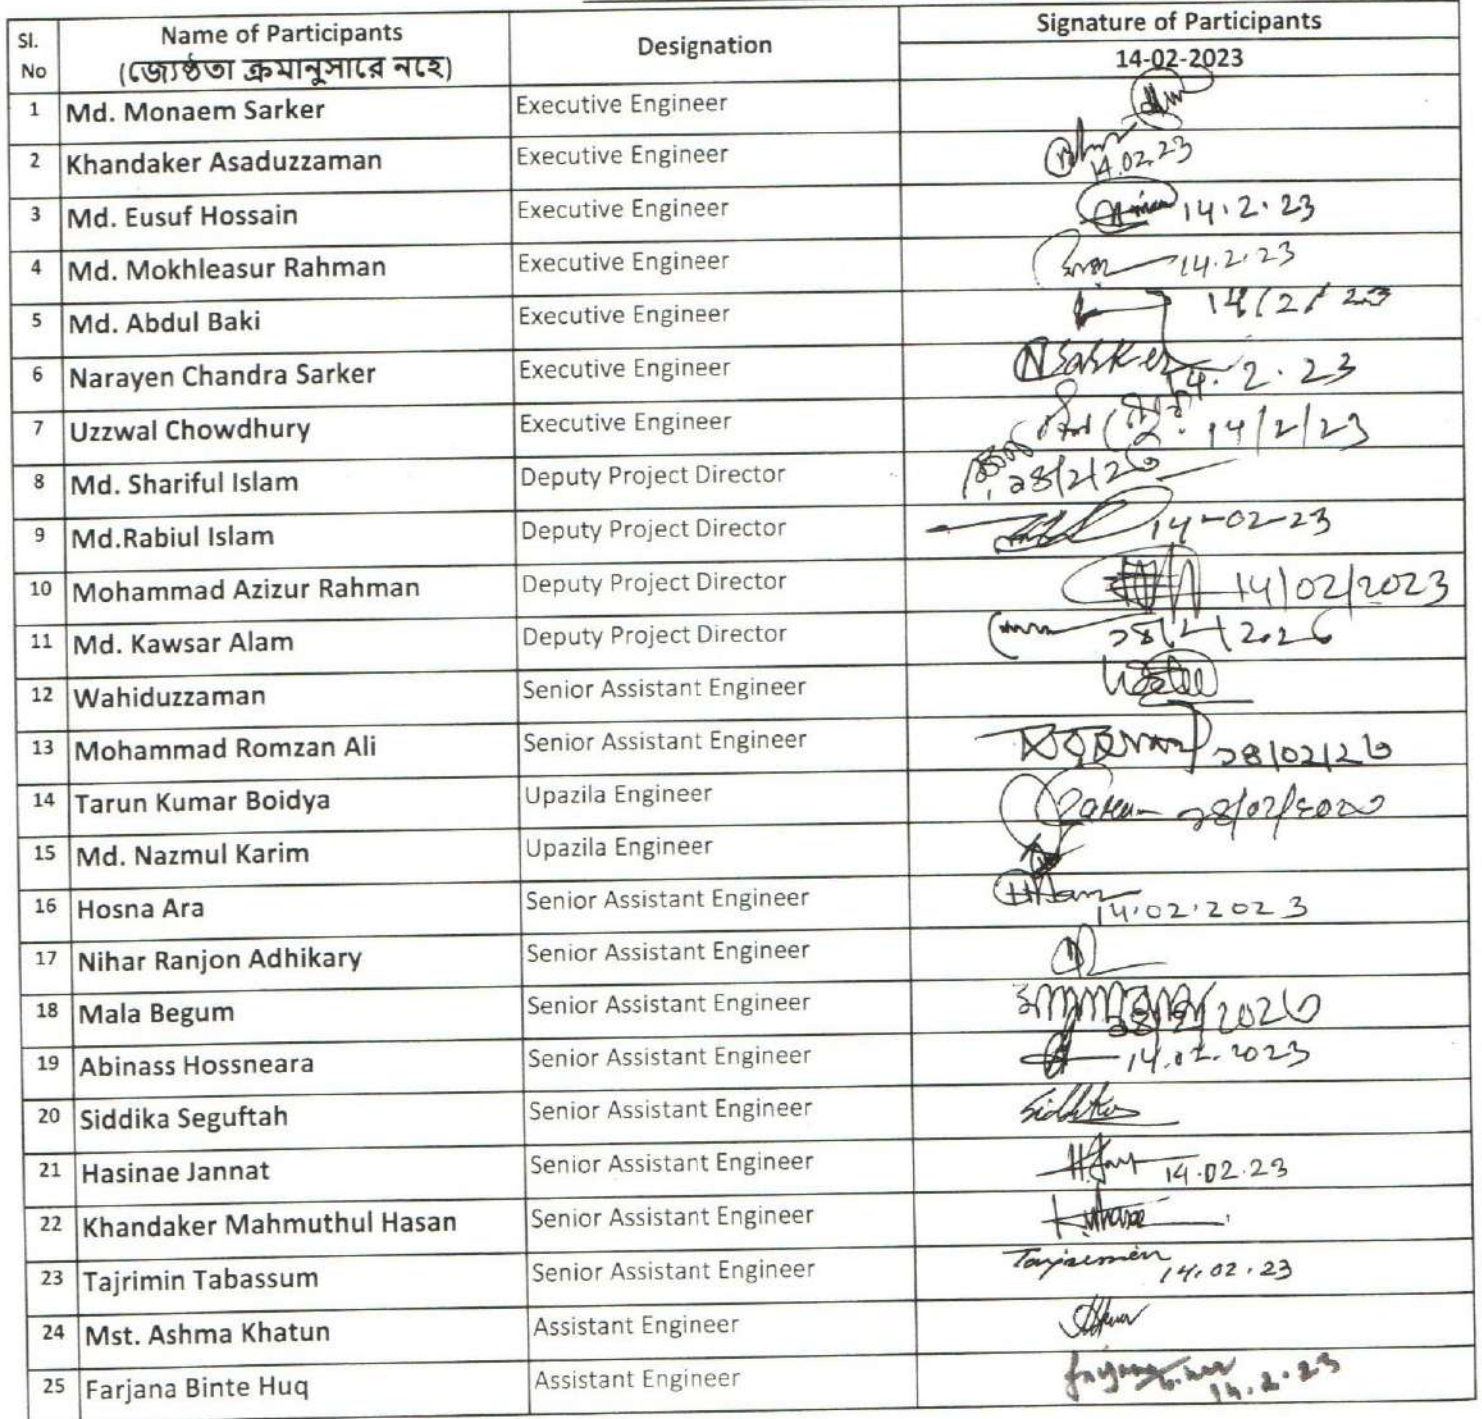 Sl. No Name of Participants (জ্যেষ্ঠতা ক্রমানুসারে নহে) Designation Signature of Participants
14-02-2023
1 Md. Monaem Sarker Executive Engineer
2 Khandaker Asaduzzaman Executive Engineer 14.02.23
3 Md. Eusuf Hossain Executive Engineer 14.2.23
4 Md. Mokhleasur Rahman Executive Engineer 14.2.23
5 Md. Abdul Baki Executive Engineer 14/2/23
6 Narayen Chandra Sarker Executive Engineer NSarker 14.2.23
7 Uzzwal Chowdhury Executive Engineer 14/2/23
8 Md. Shariful Islam Deputy Project Director ১৪/২/২৩
9 Md.Rabiul Islam Deputy Project Director 14-02-23
10 Mohammad Azizur Rahman Deputy Project Director 14/02/2023
11 Md. Kawsar Alam Deputy Project Director ১৪/২/২০২৩
12 Wahiduzzaman Senior Assistant Engineer
13 Mohammad Romzan Ali Senior Assistant Engineer ১৪/০২/২৩
14 Tarun Kumar Boidya Upazila Engineer ১৪/০২/২০২৩
15 Md. Nazmul Karim Upazila Engineer
16 Hosna Ara Senior Assistant Engineer 14.02.2023
17 Nihar Ranjon Adhikary Senior Assistant Engineer
18 Mala Begum Senior Assistant Engineer ১৪/২/২০২৩
19 Abinass Hossneara Senior Assistant Engineer 14.02.2023
20 Siddika Seguftah Senior Assistant Engineer Siddika
21 Hasinae Jannat Senior Assistant Engineer 14.02.23
22 Khandaker Mahmuthul Hasan Senior Assistant Engineer
23 Tajrimin Tabassum Senior Assistant Engineer 14.02.23
24 Mst. Ashma Khatun Assistant Engineer
25 Farjana Binte Huq Assistant Engineer 14.2.23